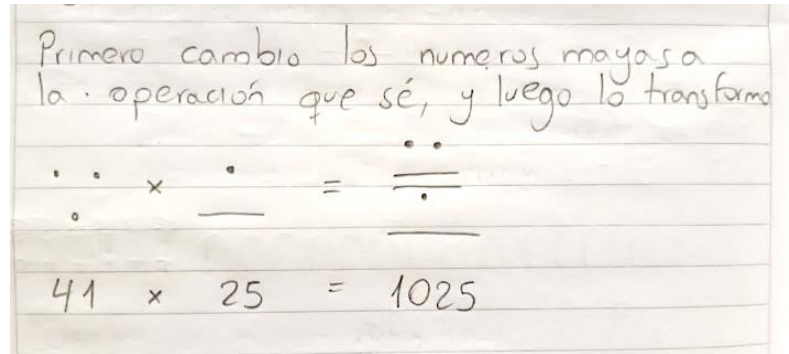 Primero cambio los numeros mayas a
la. operación que sé, y luego lo transformo
× =
41 × 25 = 1025